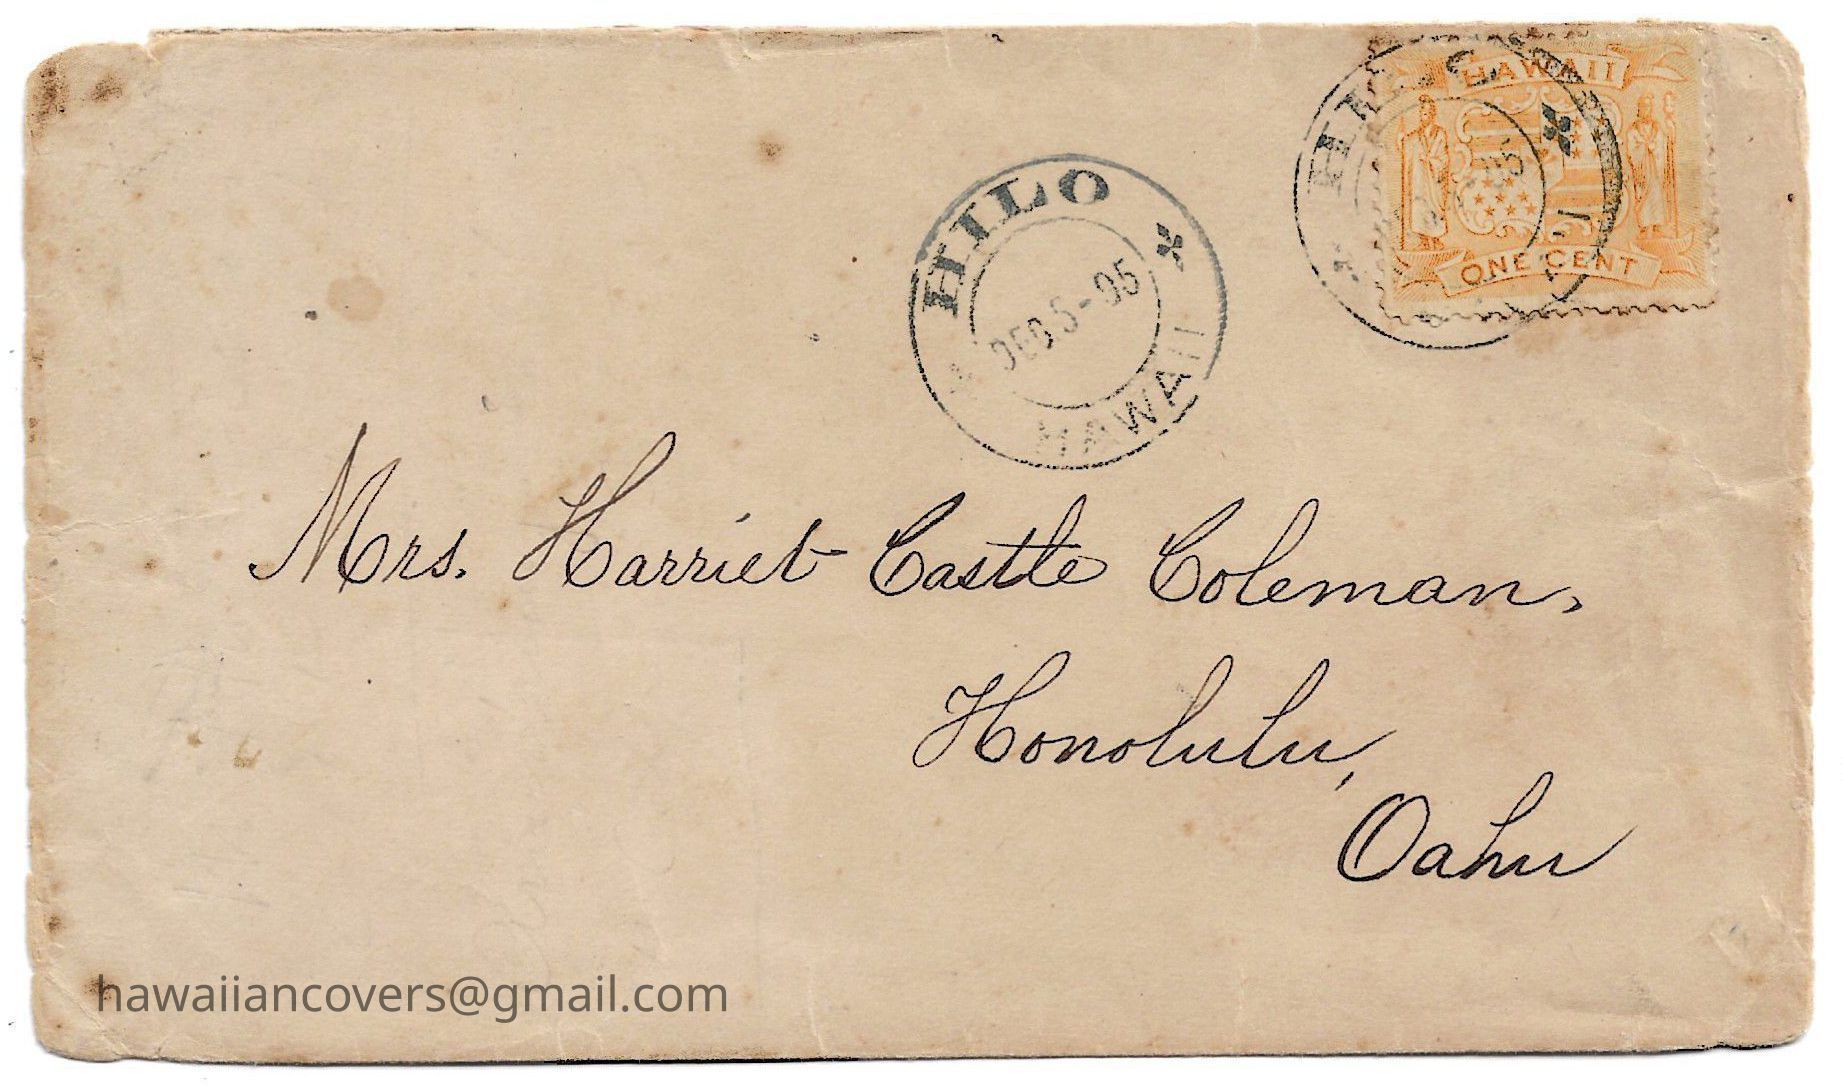 HAWAII
ONE CENT
HILO
HILO
DEC 5-95
HAWAII
Mrs. Harriet Castle Coleman,
Honolulu,
Oahu
hawaiiancovers@gmail.com